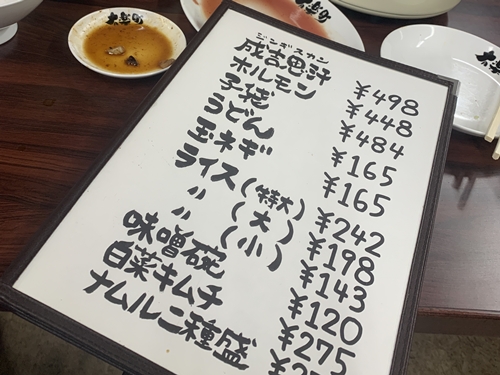 ジンギスカン
成吉思汗 ¥498
ホルモン ¥448
子袋 ¥484
うどん ¥165
玉ネギ ¥165
ライス(特大) ¥242
〃(大) ¥198
〃(小) ¥143
味噌碗 ¥120
白菜キムチ ¥275
ナムル二種盛